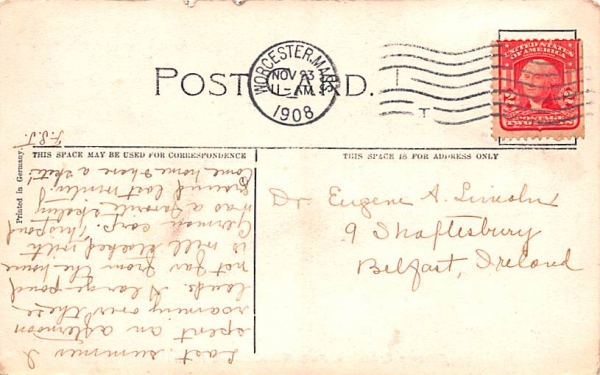 POST CARD.
WORCESTER, MASS.
NOV 23
11-AM
1908
UNITED STATES
OF AMERICA
POSTAGE
F.S.J.
Printed in Germany.
THIS SPACE MAY BE USED FOR CORRESPONDENCE
THIS SPACE IS FOR ADDRESS ONLY
Last summer I
spent an afternoon
roaming over these
lands. A large pond
not far from the house
is well stocked with
German carp. This pond
was a favorite skating
ground last winter.
Come home & have a skate!
Dr. Eugene A. Lincoln
9 Shaftesbury
Belfast, Ireland